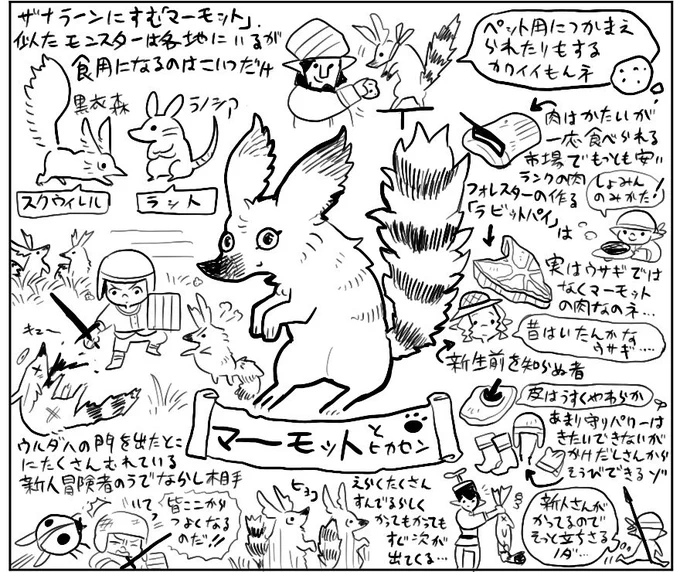 ザナラーンにすむ「マーモット」.
似たモンスターは各地にいるが
食用になるのはこいつだけ
黒衣森
ラノシア
スクウィレル
ラット
ペット用につかまえ
られたりもする
カワイイもんネ
肉はかたいが
一応食べられる
市場でもっとも安い
ランクの肉
しょみん
のみかた!
フォレスターの作る
「ラビットパイ」は
実はウサギでは
なくマーモット
の肉なのネ…
昔はいたんかな
ウサギ….
新生前を知らぬ者
キュー
マーモットとヒカセン
皮はうすくやわらか
あまり守りパワーは
きたいできないが
かけだしさんから
そうびできるゾ
ウルダハの門を出たとこ
にたくさんむれている
新人冒険者のうでならし相手
いてっ
皆ここから
つよくなる
のだ!!
ヒョコ
えらくたくさん
すんでるらしく
かってもかっても
すぐ次が
出てくる…
新人さんが
かってるので
そっと立ちさる
ノダ…